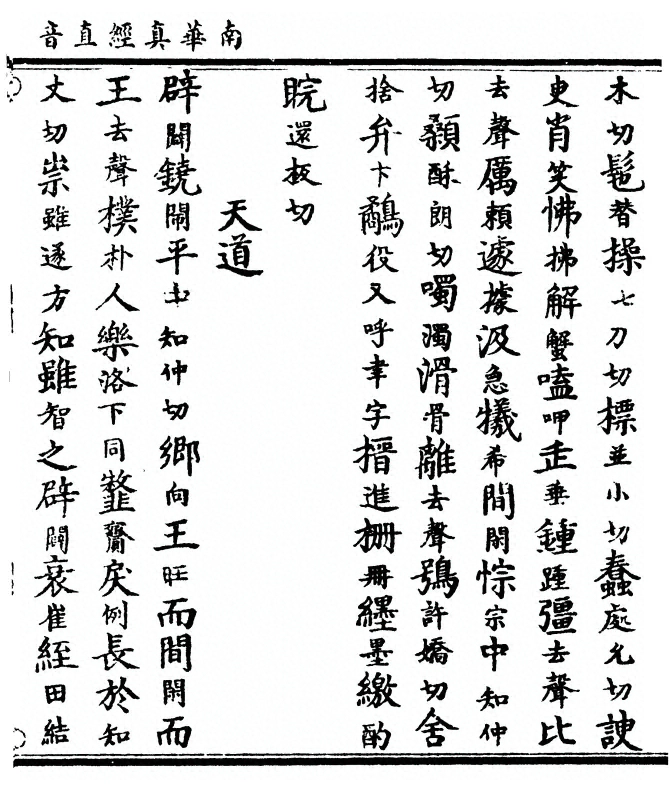 南華真經直音
木切髢替操七刀切標並小切蠢處允切諛
臾肖笑怫拂解蟹嗑呷垂鍾踵彊去聲比
去聲厲賴遽據汲急犧希間閑悰宗中知仲
切顙酥朗切噣濁滑骨離去聲鴞許嬌切舍
捨弁卞鷸役又呼聿字搢進柵冊纆墨繳酌
睆還板切
天道
辟闢鐃鬧平中知仲切鄉向王旺而間閑而
王去聲樸朴人樂洛下同齎戾例長於知
丈切祟雖遂方知雖智之辟闢衰崔絰田結